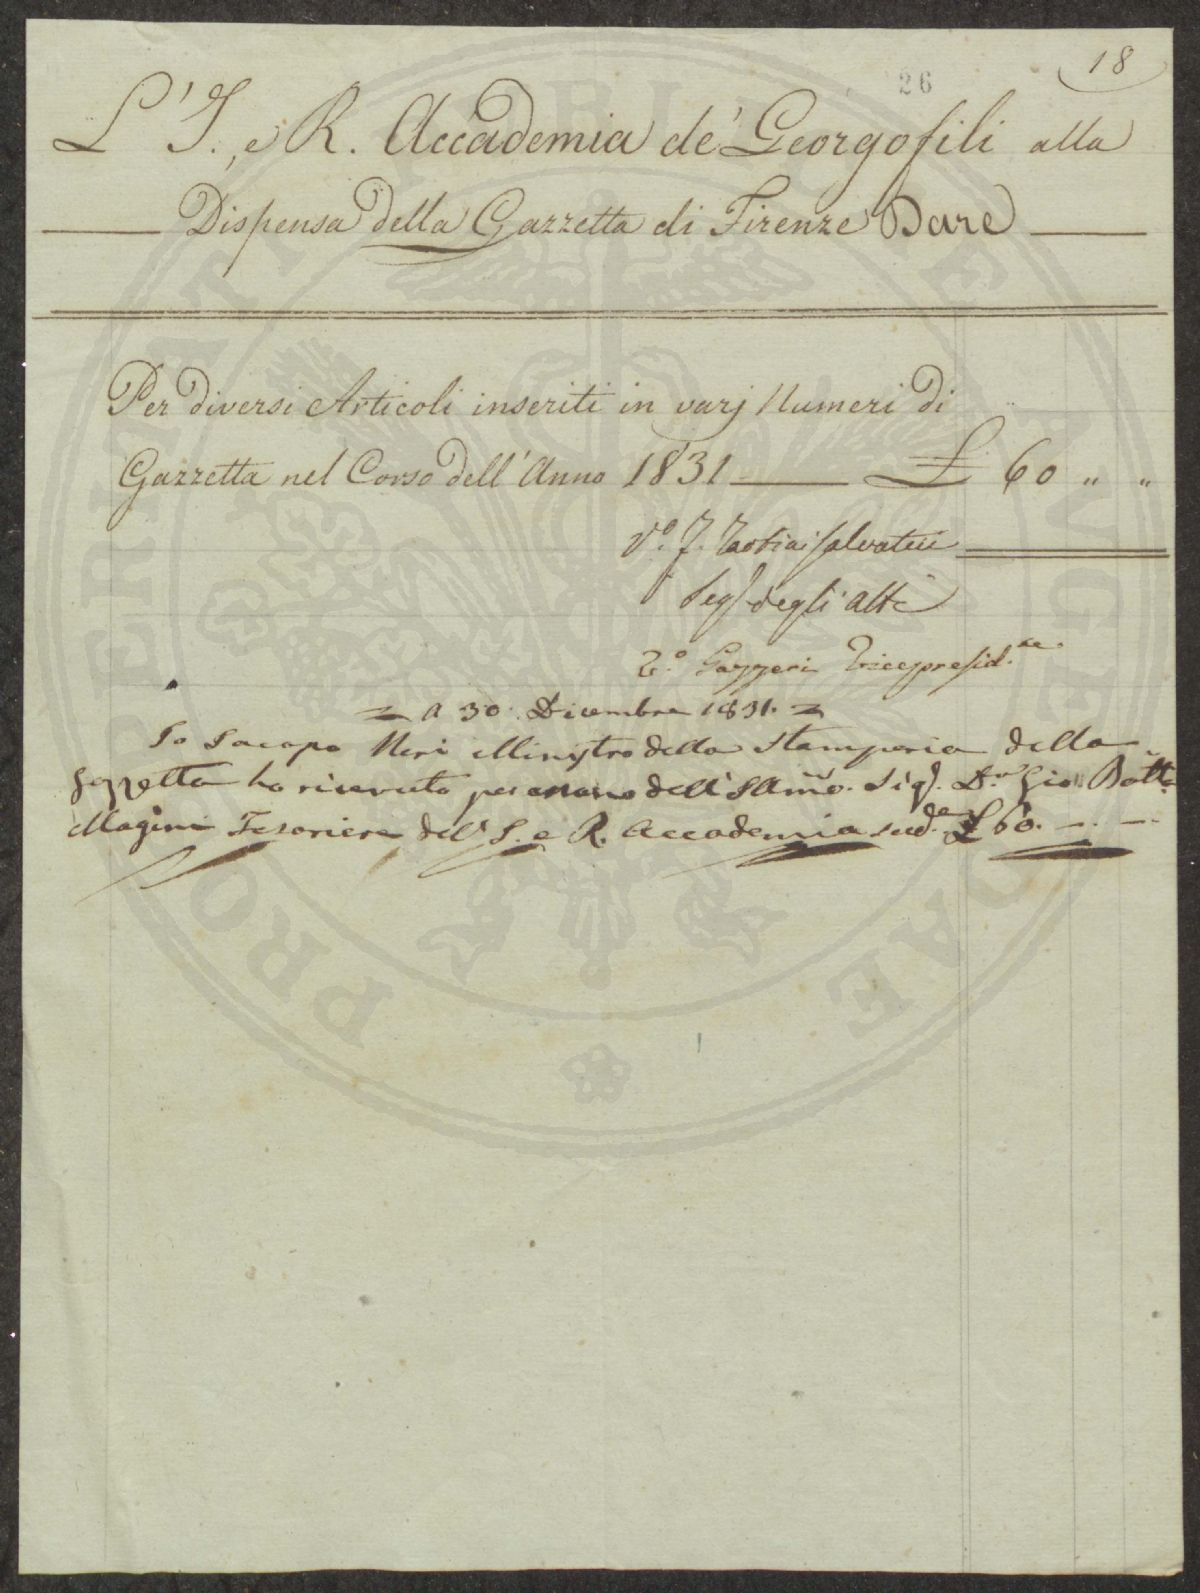 18
26
L' I. e R. Accademia de' Georgofili alla
Dispensa della Gazzetta di Firenze Dare
Per diversi Articoli inseriti in varj Numeri di
Gazzetta nel Corso dell' Anno 1831 £ 60 " "
V.° F. Tartini Salvatici
Seg. degli Atti
V.° Gazzeri Vicepresid.te
A 30. Dicembre 1831.
Io Jacopo Neri Ministro della Stamperia della
Gazzetta ho ricevuto per mano dell' Illmo. Sig. D.r Gio. Batt.
Magini Tesoriere dell' I. e R. Accademia sud.a £ 60. -. -
PROSPERITATI PUBLICAE AUGENDAE